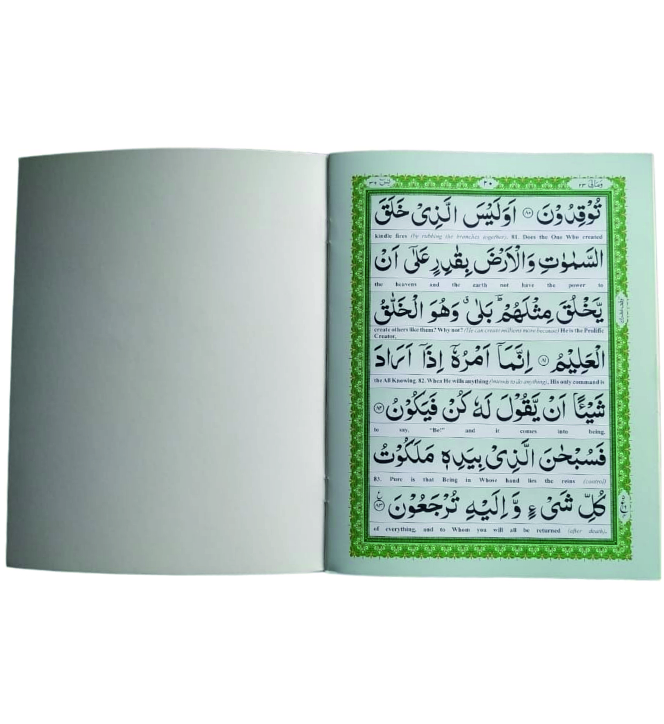 يٰسٓ ٣٦ ٢٠ وَمَالِیَ ٢٣
تُوْقِدُوْنَ ﴿٨٠﴾ اَوَلَيْسَ الَّذِیْ خَلَقَ
kindle fires (by rubbing the branches together). 81. Does the One Who created
السَّمٰوٰتِ وَالْاَرْضَ بِقٰدِرٍ عَلٰۤی اَنْ
the heavens and the earth not have the power to
يَّخْلُقَ مِثْلَهُمْ ؕ بَلٰی ۗ وَهُوَ الْخَلّٰقُ
create others like them? Why not? (He can create millions more because) He is the Prolific
Creator,
الْعَلِيْمُ ﴿٨١﴾ اِنَّمَاۤ اَمْرُهٗۤ اِذَاۤ اَرَادَ
the All Knowing. 82. When He wills anything (intends to do anything), His only command is
شَيْـًٔا اَنْ يَّقُوْلَ لَهٗ كُنْ فَيَكُوْنُ ﴿٨٢﴾
to say, "Be!" and it comes into being.
فَسُبْحٰنَ الَّذِیْ بِيَدِهٖ مَلَكُوْتُ
83. Pure is that Being in Whose hand lies the reins (control)
كُلِّ شَیْءٍ وَّاِلَيْهِ تُرْجَعُوْنَ ﴿٨٣﴾
of everything, and to Whom you will all be returned (after death).